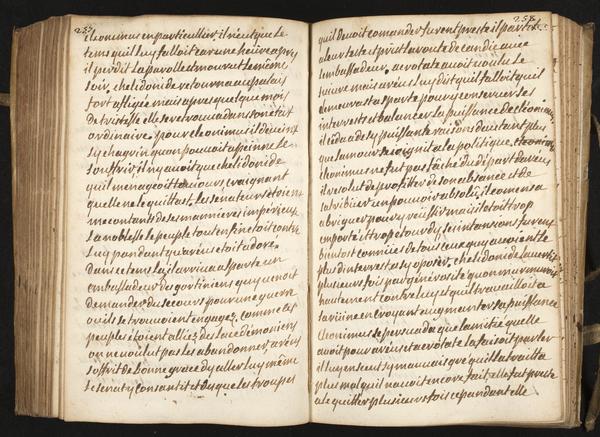 257
cleonimus en particullier, il n'eut que le
tems quil luy falloit car une heure apres
il perdit la parolle et mourut le mesme
soir, chelidonide retourna au palais
fort afligée mais apres quelque mois
de tristesse elle se retrouva dans son etat
ordinaire, pour cleonimus il devint
sy chagrin quon pouvoit a peinne le
souffrir, il ny avoit que chelidonide
quil menageoit tousiours, craignant
quelle ne le quitast, les senateurs etoient
mecontants de ses mannieres imperieuses
la noblesse le peuple tout enfin etoit contre
luy pandant qu'areus etoit adoré,
dans ce tems la il arriva a sparte un
embassadeur des gortiniens quy venoit
demander du secours pour une guerre
ou ils se trouvoient engagez, comme ces
peuples etoient alliez des lacedemoniens
on ne voulut pas les abandonner, areus
s'offrit de bonne grace dy aller luy mesme
le senat y consantit et des que les trouppes
258
quil devoit comander furent prestes il partit
a leur teste et prist la route de candie avec
l'embassadeur, acrotate avoit voulu le
suivre mais areus luy dit quil falloit quil
demeurast a sparte pour y conserver ses
interrests et balancer la puissance de cleonimus
il ceda a de sy puissantes raisons d'autant plus
que l'amour se joignit a la politique,
cleonimus ne fut pas fâché du départ d'areus
il resolut de profitter de son absance et de
s'atribuer un pouvoir absolu, il comensa
a briguer pour y reussir mais il etoit trop
emporté et trop etourdy, ses intansions furent
bientost connües de tous ceux quy avoient le
plus dinterrest a sy oposer, chelidonide l'avertit
plusieurs fois par generosité quon murmuroit
hautement contre luy et quil travailloit a
sa ruine en croyant augmanter sa puissance
cleonimus se persuada que l'amitié quelle
avoit pour areus et acrotate la faisoit parler
il luy en sceut sy mauvais gré quil la traitta
plus mal quil n'avoit encore fait, elle fut preste
a le quitter plusieurs fois cepandant elle